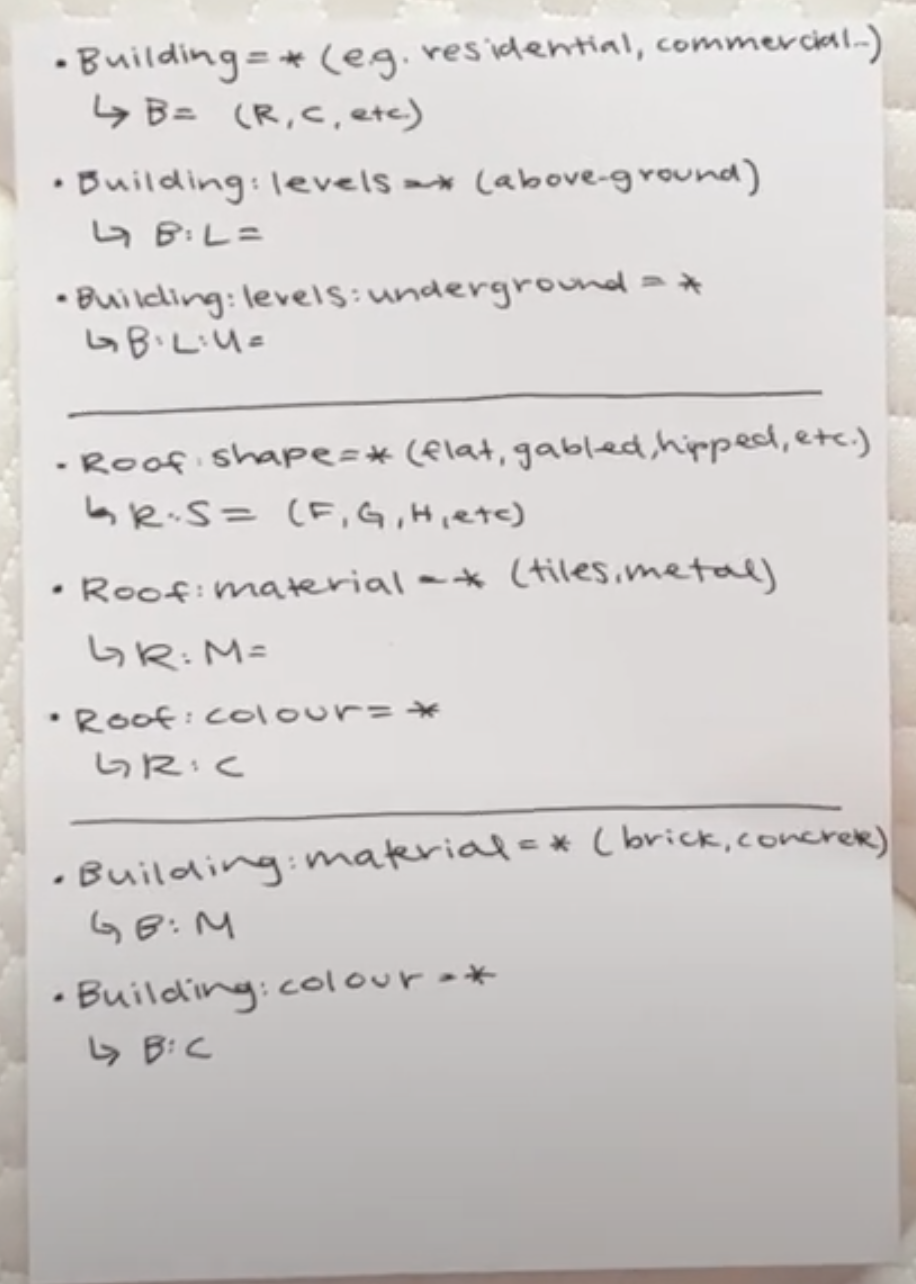 • Building = * (eg. residential, commercial..)
↳ B= (R, C, etc)
• Building: levels = * (above-ground)
↳ B:L=
• Building: levels: underground = *
↳ B:L:U=
• Roof: shape = * (flat, gabled, hipped, etc.)
↳ R:S= (F, G, H, etc)
• Roof: material = * (tiles, metal)
↳ R:M=
• Roof: colour = *
↳ R:C
• Building: material = * (brick, concrete)
↳ B:M
• Building: colour = *
↳ B:C